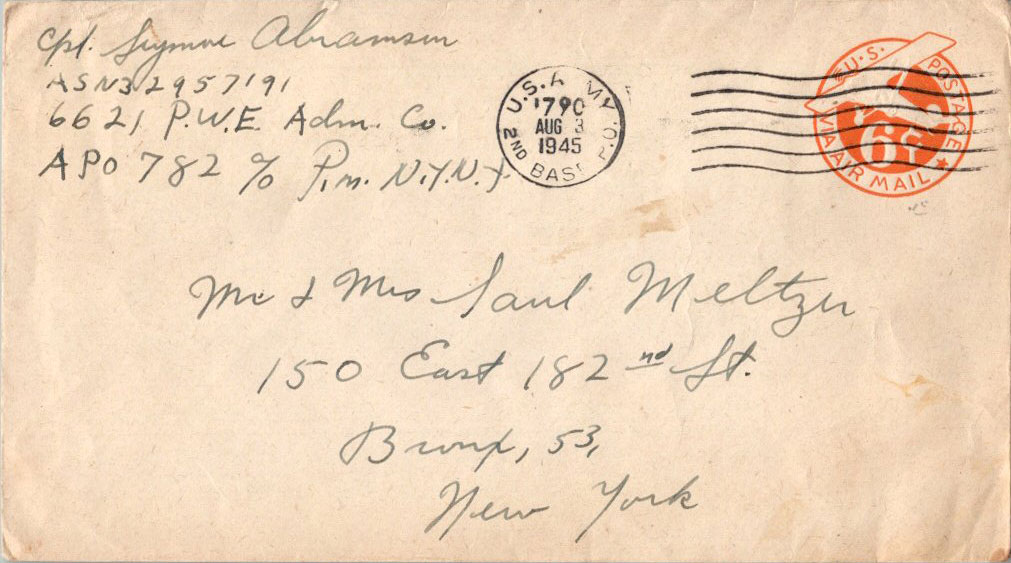 Cpl. Seymour Abramson
ASN 32957191
6621 P.W.E. Adm. Co.
APO 782 c/o P.m. N.Y.N.Y.
U.S. ARMY
790
AUG 3
1945
2ND BASE P.O.
U.S. POSTAGE
6¢
VIA AIR MAIL
Mr & Mrs Saul Meltzer
150 East 182nd St.
Bronx, 53,
New York